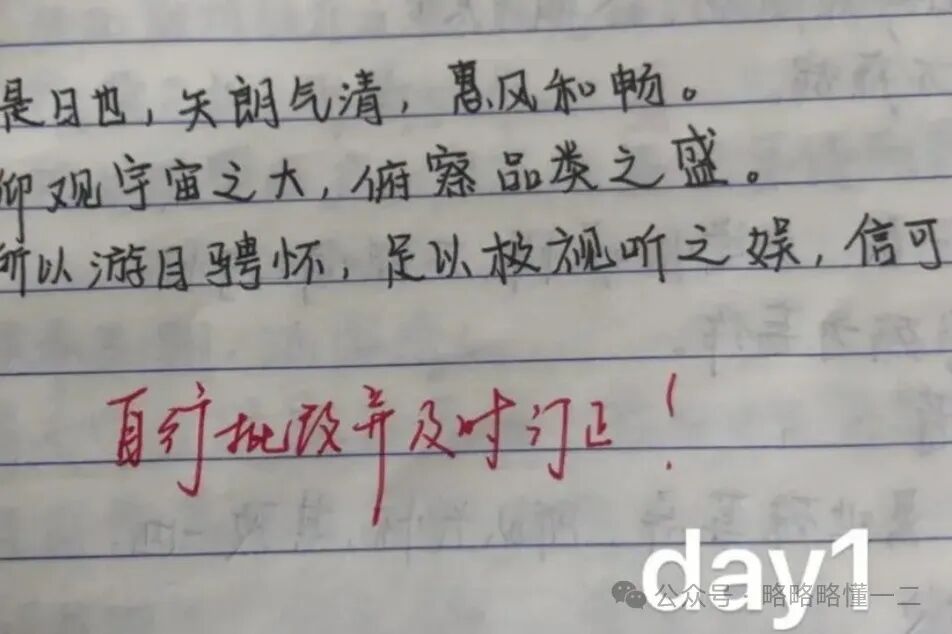 是日也，天朗气清，惠风和畅。
仰观宇宙之大，俯察品类之盛。
所以游目骋怀，足以极视听之娱，信可
自行批改并及时订正！
day1
公众号·略略略懂一二